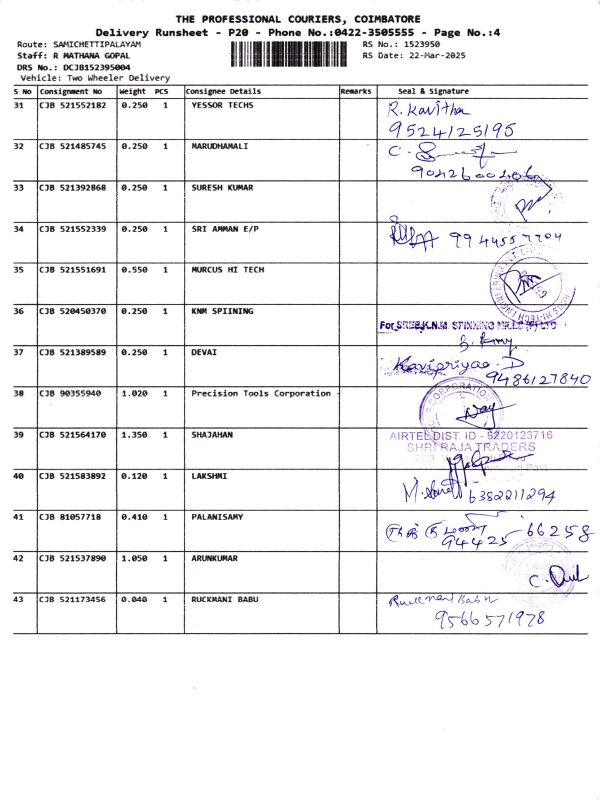 THE PROFESSIONAL COURIERS, COIMBATORE
Delivery Runsheet - P20 - Phone No.:0422-3505555 - Page No.:4
Route: SAMICHETTIPALAYAM RS No.: 1523950
Staff: R MATHANA GOPAL RS Date: 22-Mar-2025
DRS No.: DCJB152395004
Vehicle: Two Wheeler Delivery
S No Consignment No Weight PCS Consignee Details Remarks Seal & Signature
31 CJB 521552182 0.250 1 YESSOR TECHS R. Kavitha
9524125195
32 CJB 521485745 0.250 1 MARUDHAMALI C.
33 CJB 521392868 0.250 1 SURESH KUMAR
34 CJB 521552339 0.250 1 SRI AMMAN E/P
35 CJB 521551691 0.550 1 MURCUS HI TECH
36 CJB 520450370 0.250 1 KNM SPIINING
For SREE K.N.M. SPINNING MILLS (P) LTD
37 CJB 521389589 0.250 1 DEVAI Kavipriyaa. D
9486127840
38 CJB 90355940 1.020 1 Precision Tools Corporation -
39 CJB 521564170 1.350 1 SHAJAHAN AIRTEL DIST. ID - 6220123716
SHRI RAJA TRADERS
40 CJB 521583892 0.120 1 LAKSHMI 6382211294
41 CJB 81057718 0.410 1 PALANISAMY
94425 - 66258
42 CJB 521537890 1.050 1 ARUNKUMAR
43 CJB 521173456 0.040 1 RUCKMANI BABU Ruckmani Babu
9566571978